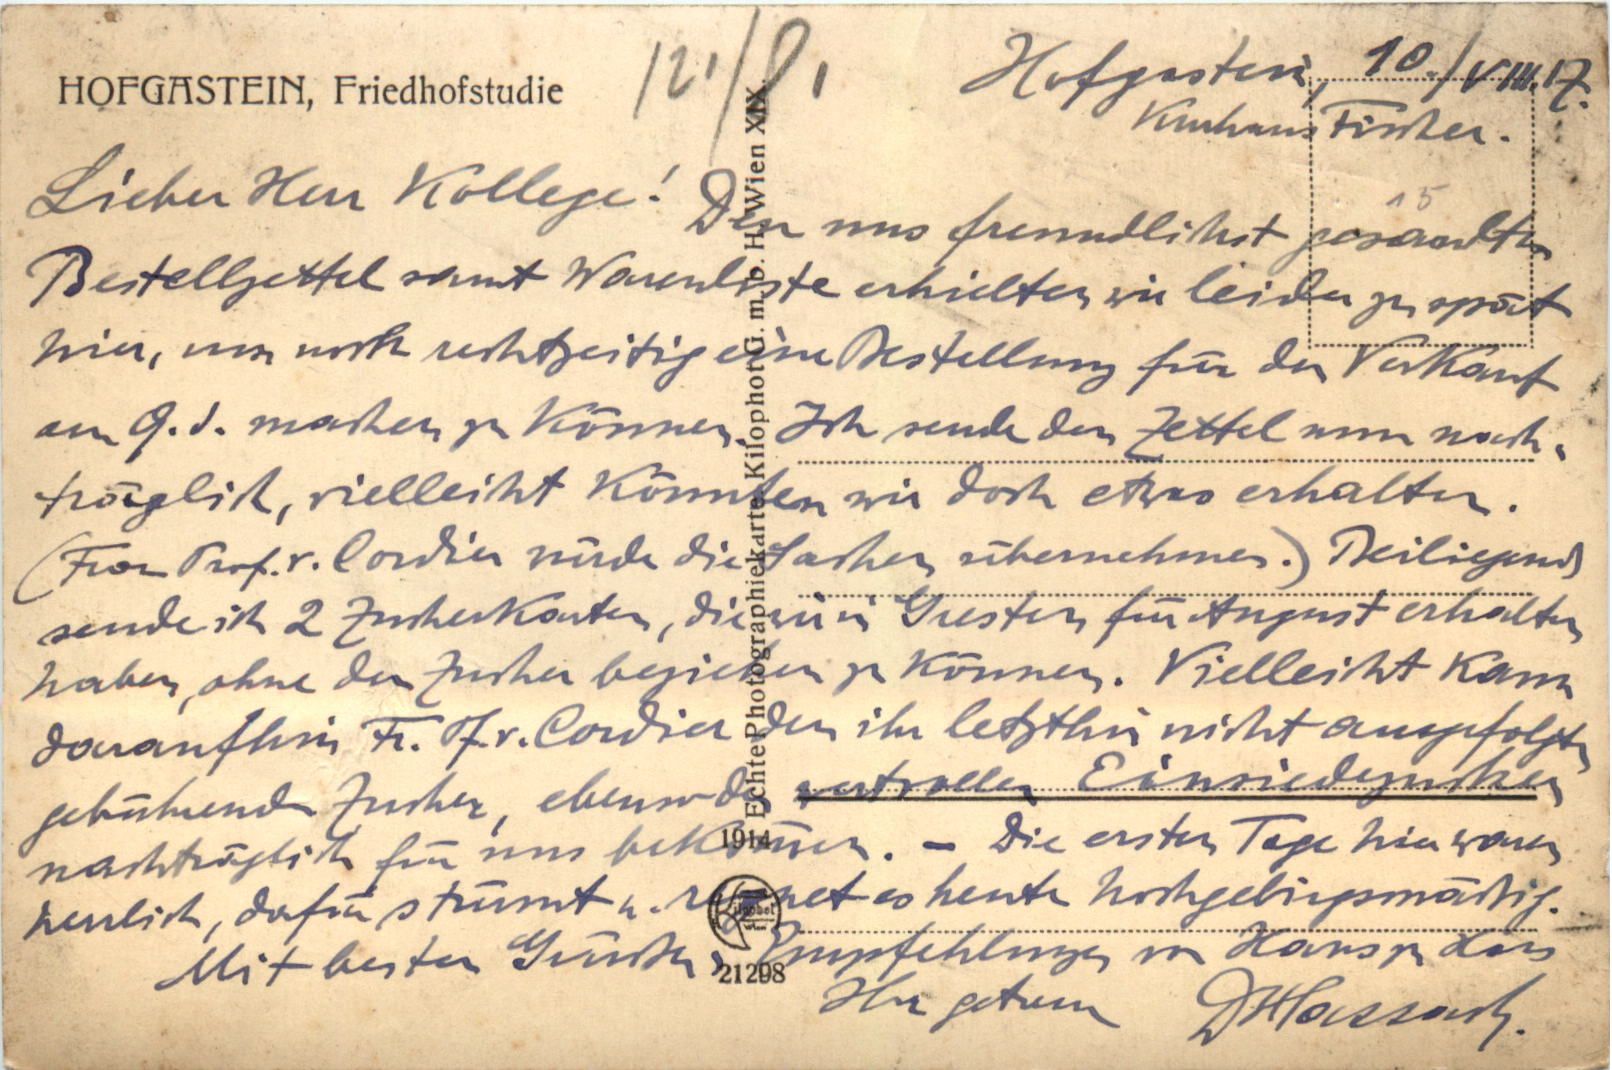 HOFGASTEIN, Friedhofstudie
12./8.
Hofgastein, 10./VIII.17.
Kurhaus Fischer.
15
Lieber Herr Kollege!
Den uns freundlichst gesandten
Bestellzettel samt Warenliste erhielten wir leider zu spät
hier, um noch rechtzeitig eine Bestellung für den Verkauf
am 9. d. machen zu können. Ich sende den Zettel nun nach-
träglich, vielleicht könnten wir doch etwas erhalten.
(Frau Prof. v. Cordier würde die Sachen übernehmen.) Beiliegend
sende ich 2 Zuckerkarten, die wir in Gresten für August erhalten
haben, ohne den Zucker beziehen zu können. Vielleicht kann
daraufhin Fr. Pf. v. Cordier den ihr letzthin nicht ausgefolgten
gebührenden Zucker, ebenso den wertvollen Einsiedezucker
nachträglich für uns bekommen. – Die ersten Tage hier waren
herrlich, dafür stürmt u. regnet es heute hochgebirgsmäßig.
Mit besten Grüßen, Empfehlungen von Haus zu Haus
Ihr getreuer
Echte Photographiekarte Kilophot G. m. b. H. Wien XIX.
1914
Kilophot
21298